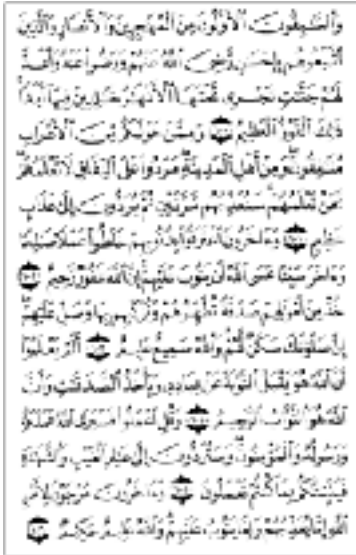 وَٱلسَّٰبِقُونَ ٱلْأَوَّلُونَ مِنَ ٱلْمُهَٰجِرِينَ وَٱلْأَنصَارِ وَٱلَّذِينَ
ٱتَّبَعُوهُم بِإِحْسَٰنٍ رَّضِىَ ٱللَّهُ عَنْهُمْ وَرَضُوا۟ عَنْهُ وَأَعَدَّ
لَهُمْ جَنَّٰتٍ تَجْرِى تَحْتَهَا ٱلْأَنْهَٰرُ خَٰلِدِينَ فِيهَآ أَبَدًا
ذَٰلِكَ ٱلْفَوْزُ ٱلْعَظِيمُ ١٠٠ وَمِمَّنْ حَوْلَكُم مِّنَ ٱلْأَعْرَابِ
مُنَٰفِقُونَ وَمِنْ أَهْلِ ٱلْمَدِينَةِ مَرَدُوا۟ عَلَى ٱلنِّفَاقِ لَا تَعْلَمُهُمْ
نَحْنُ نَعْلَمُهُمْ سَنُعَذِّبُهُم مَّرَّتَيْنِ ثُمَّ يُرَدُّونَ إِلَىٰ عَذَابٍ
عَظِيمٍ ١٠١ وَءَاخَرُونَ ٱعْتَرَفُوا۟ بِذُنُوبِهِمْ خَلَطُوا۟ عَمَلًا صَٰلِحًا
وَءَاخَرَ سَيِّئًا عَسَى ٱللَّهُ أَن يَتُوبَ عَلَيْهِمْ إِنَّ ٱللَّهَ غَفُورٌ رَّحِيمٌ ١٠٢
خُذْ مِنْ أَمْوَٰلِهِمْ صَدَقَةً تُطَهِّرُهُمْ وَتُزَكِّيهِم بِهَا وَصَلِّ عَلَيْهِمْ
إِنَّ صَلَوٰتَكَ سَكَنٌ لَّهُمْ وَٱللَّهُ سَمِيعٌ عَلِيمٌ ١٠٣ أَلَمْ يَعْلَمُوٓا۟
أَنَّ ٱللَّهَ هُوَ يَقْبَلُ ٱلتَّوْبَةَ عَنْ عِبَادِهِۦ وَيَأْخُذُ ٱلصَّدَقَٰتِ وَأَنَّ
ٱللَّهَ هُوَ ٱلتَّوَّابُ ٱلرَّحِيمُ ١٠٤ وَقُلِ ٱعْمَلُوا۟ فَسَيَرَى ٱللَّهُ عَمَلَكُمْ
وَرَسُولُهُۥ وَٱلْمُؤْمِنُونَ وَسَتُرَدُّونَ إِلَىٰ عَٰلِمِ ٱلْغَيْبِ وَٱلشَّهَٰدَةِ
فَيُنَبِّئُكُم بِمَا كُنتُمْ تَعْمَلُونَ ١٠٥ وَءَاخَرُونَ مُرْجَوْنَ لِأَمْرِ
ٱللَّهِ إِمَّا يُعَذِّبُهُمْ وَإِمَّا يَتُوبُ عَلَيْهِمْ وَٱللَّهُ عَلِيمٌ حَكِيمٌ ١٠٦